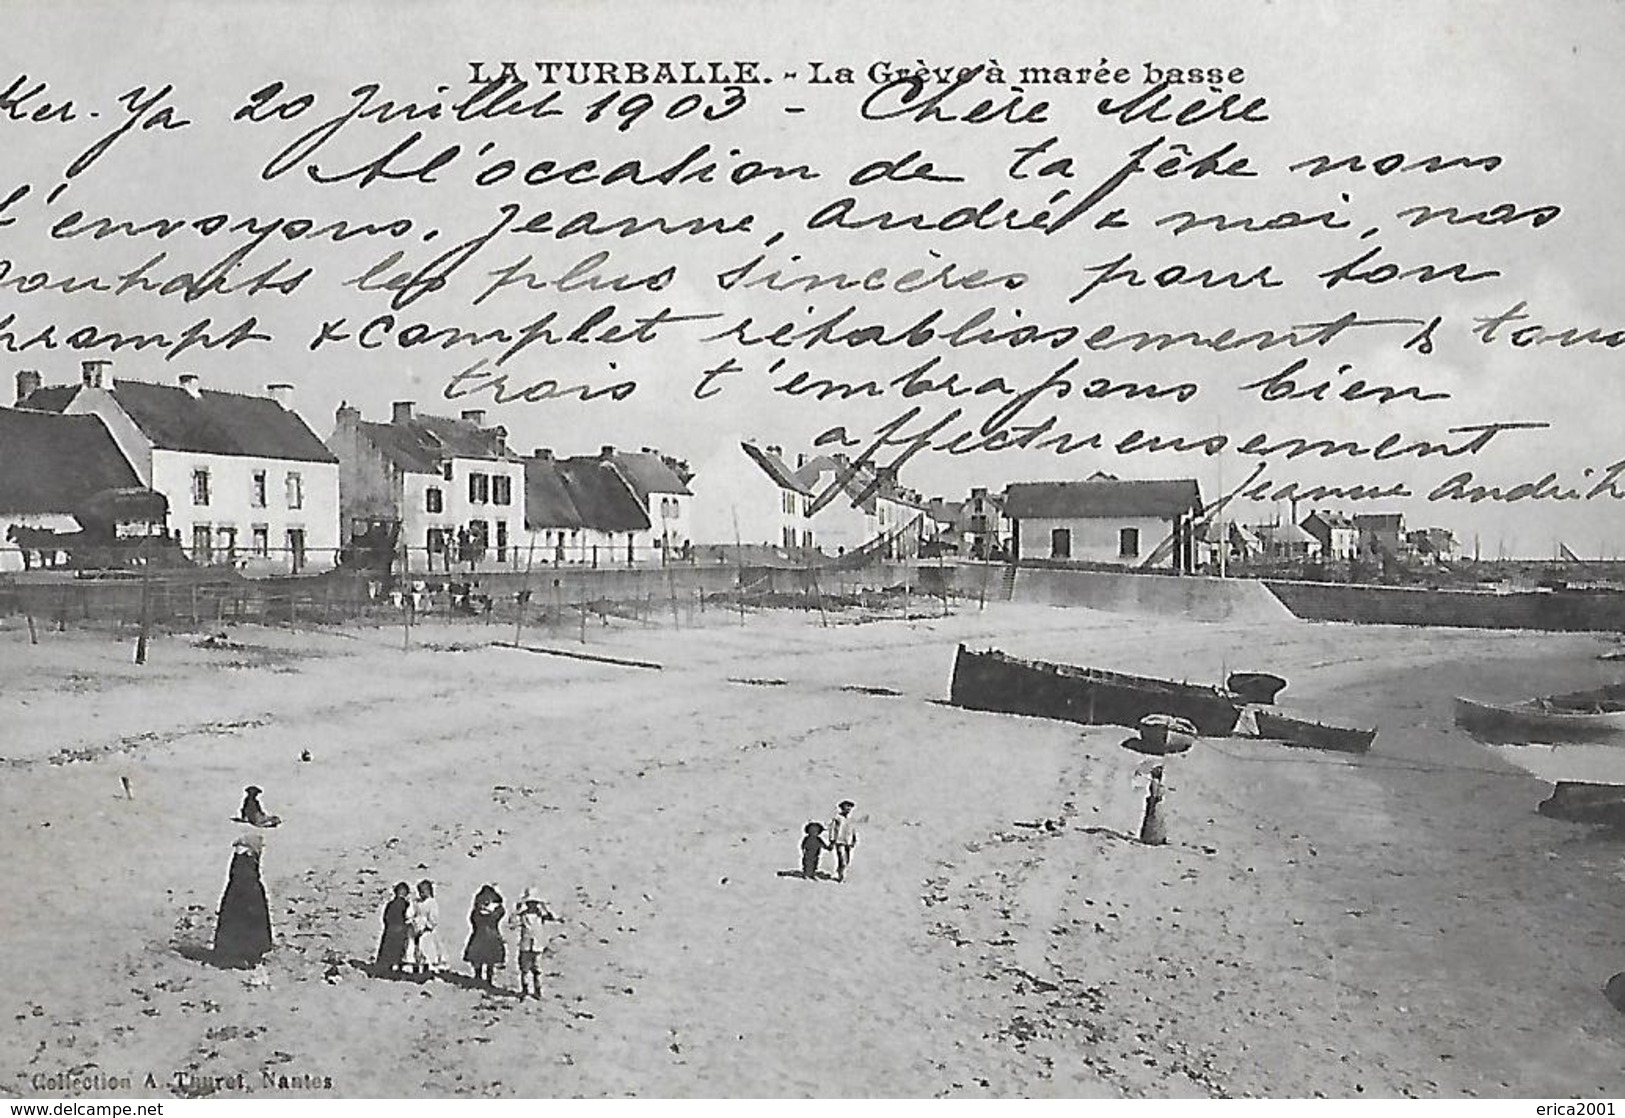 LA TURBALLE. - La Grève à marée basse
Ker-Ya 20 Juillet 1903 - Chère Mère
A l'occasion de ta fête nous
t'envoyons, Jeanne, André & moi, nos
souhaits les plus sincères pour ton
prompt & complet rétablissement & tous
trois t'embrassons bien
affectueusement
Jeanne André
Collection A. Thuret, Nantes
www.delcampe.net
erica2001